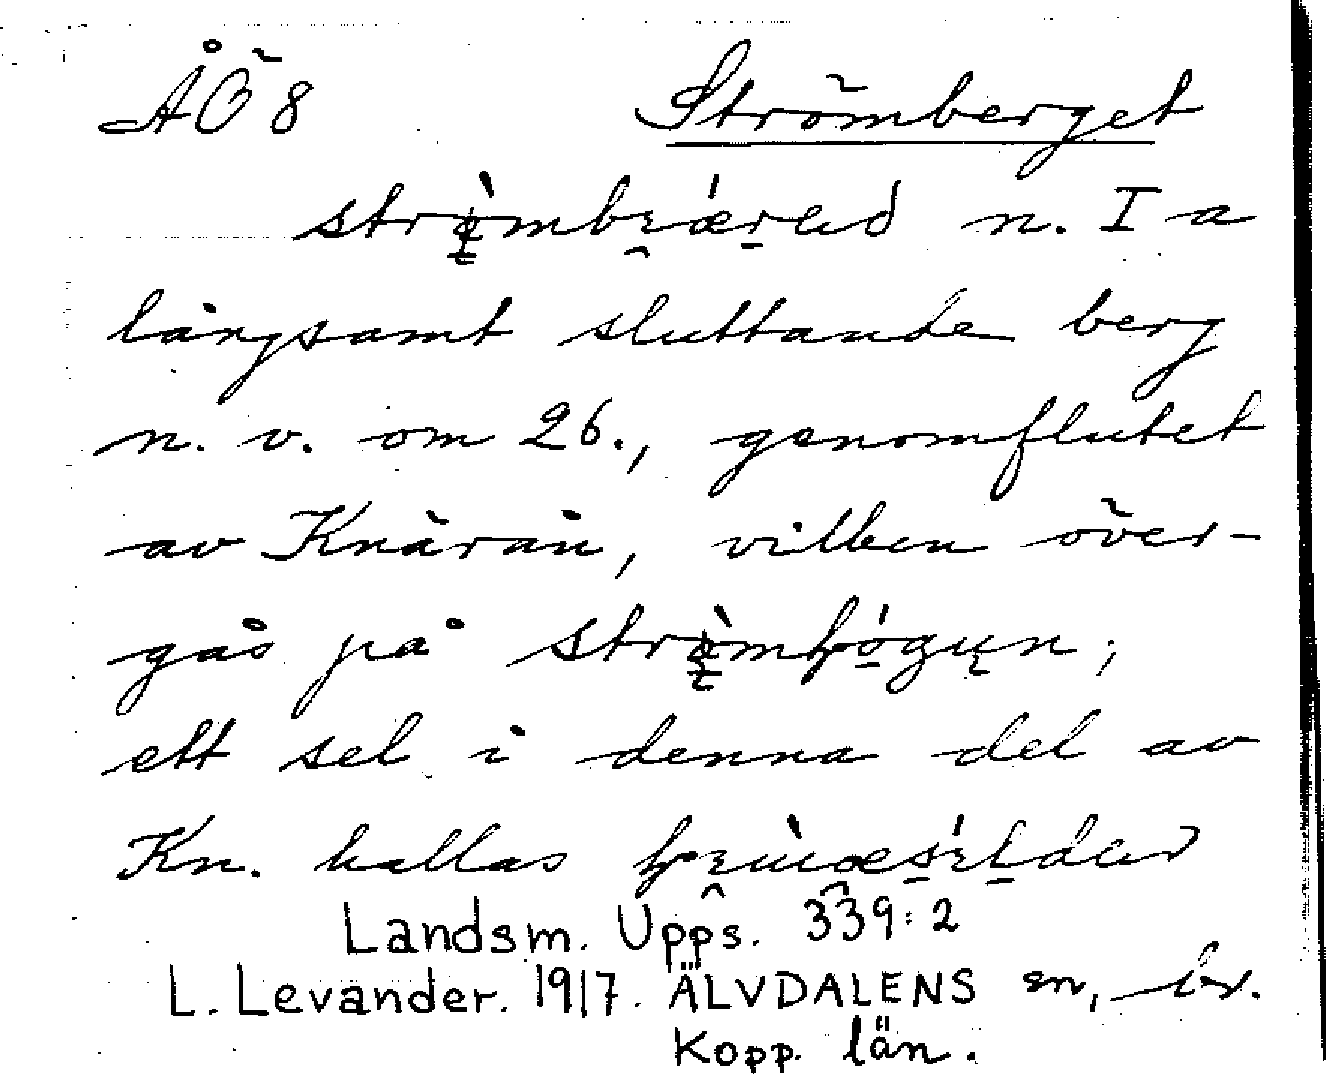 ÅÖ 8 Strömberget
n. I a
långsamt sluttande berg
n. v. om 26., genomflutet
av Knärån, vilken över-
gås på ;
ett sel i denna del av
Kn. kallas
Landsm. Upps. 339:2
L. Levander. 1917. ÄLVDALENS sn,
Kopp. län.